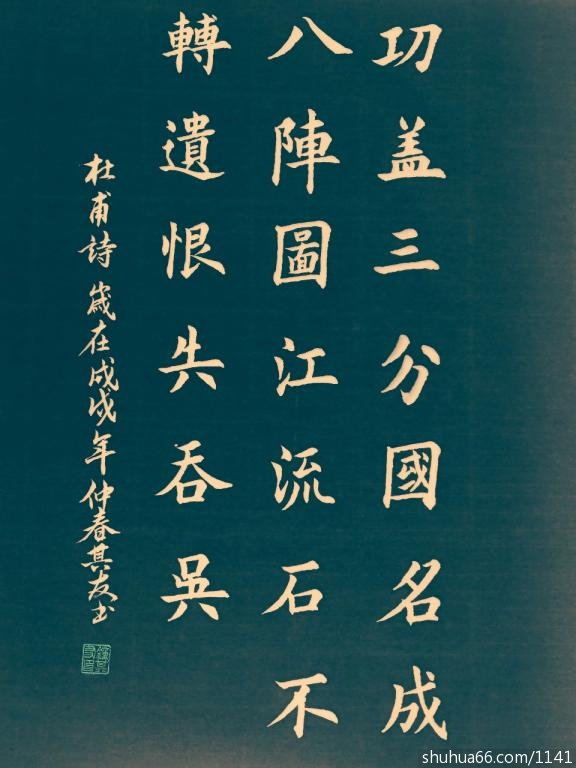 功盖三分國名成
八陣圖江流石不
轉遺恨失吞吳
杜甫詩 嵗在戊戌年仲春其友书
shuhua66.com/1141